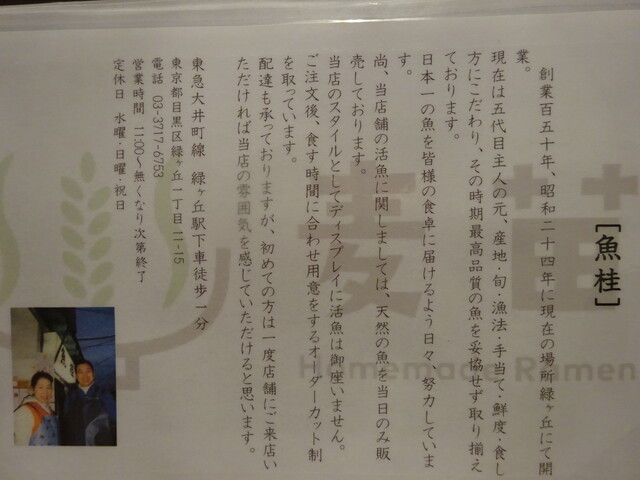 [魚桂]
創業百五十年、昭和二十四年に現在の場所緑ヶ丘にて開
業。
現在は五代目主人の元、産地・旬・漁法・手当て・鮮度・食し
方にこだわり、その時期最高品質の魚を妥協せず取り揃え
ております。
日本一の魚を皆様の食卓に届けるよう日々、努力していま
す。
尚、当店舗の活魚に関しましては、天然の魚を当日のみ販
売しております。
当店のスタイルとしてディスプレイに活魚は御座いません。
ご注文後、食す時間に合わせ用意をするオーダーカット制
を取っています。
配達も承っておりますが、初めての方は一度店舗にご来店い
ただければ当店の雰囲気を感じていただけると思います。
東急大井町線 緑ヶ丘駅下車徒歩一分
東京都目黒区緑ヶ丘一丁目二-15
電話 03-3717-6753
営業時間 11:00~無くなり次第終了
定休日 水曜・日曜・祝日
麦苗
Homemade Ramen